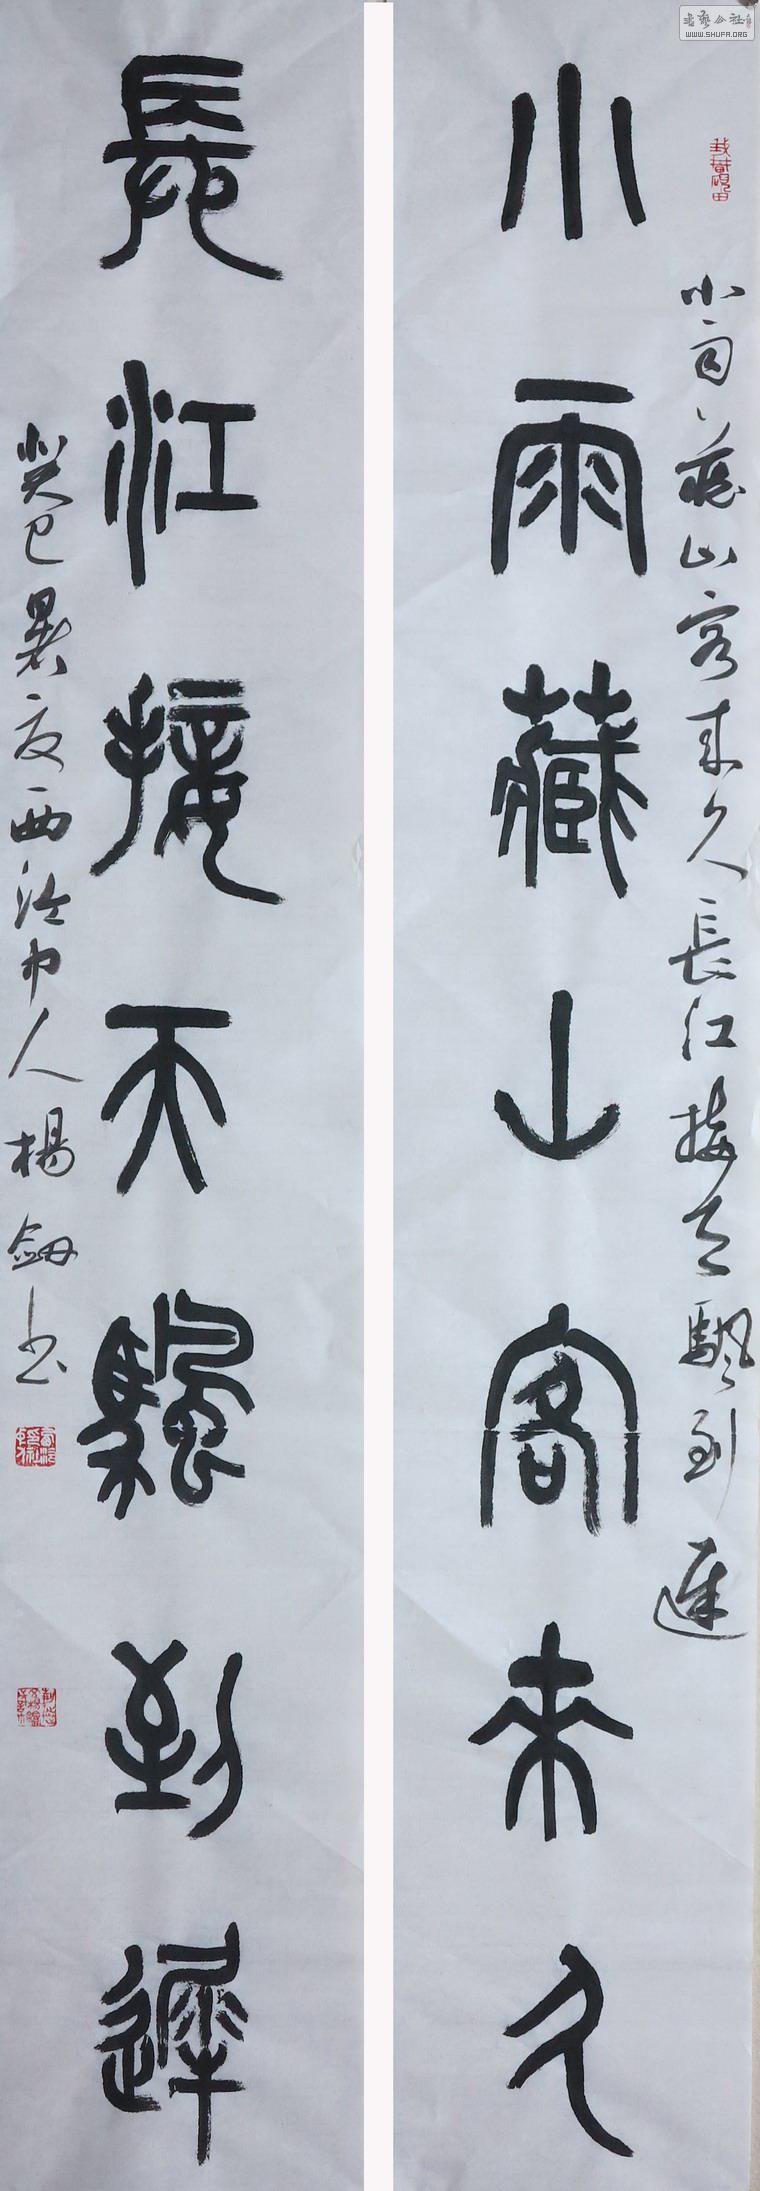 小雨藏山客來久
小雨藏山客來久長江接天颿到遲
長江接天颿到遲
癸巳暑夜西泠中人楊劍書
WWW.SHUFA.ORG